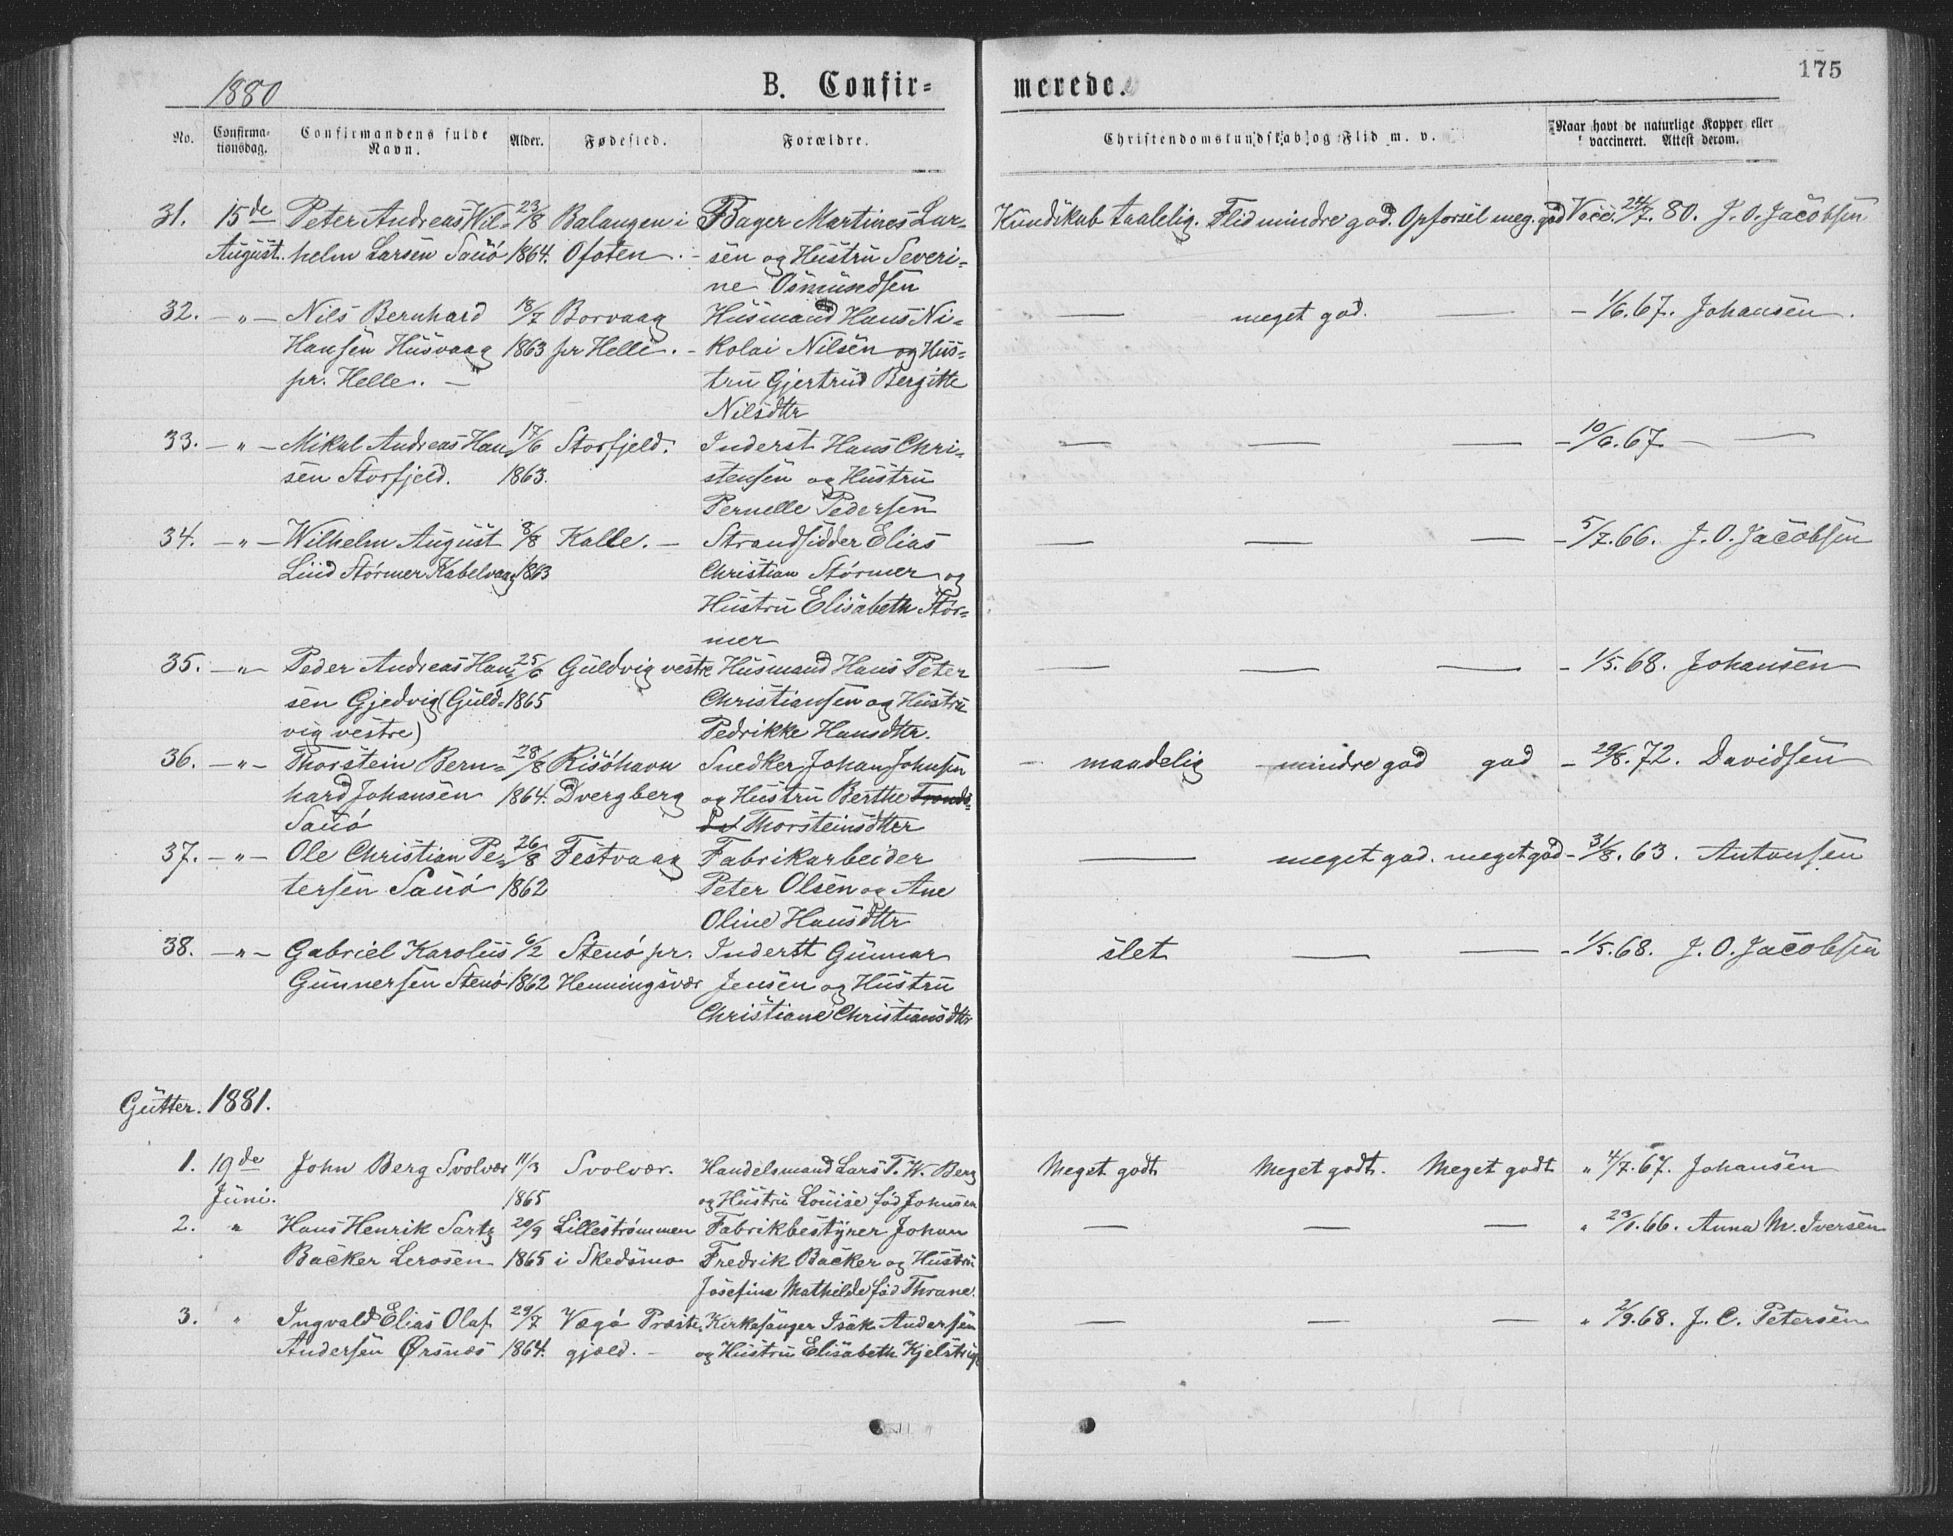 175
1880 B. Confir= merede.
No. Confirma-tionsdag. Confirmandens fulde Navn. Alder. Fødested. Forældre. Christendomskundskab og Flid m. v. Naar havt de naturlige Kopper eller vaccineret. Attest derom.
31. 15de Peter Andreas Wil= 23/8 Balangen i Bager Martines Lar= Kundskab taalelig. Flid mindre god. Opførsel meg. god Vacc. 24/7. 80. J. O. Jacobsen
August. helm Larsen Sauö 1864. Ofoten. sen og Hustru Severi=
ne Osmundsen
32. — " — Nils Bernhard 18/7 Borvaag Husmand Hans Ni= — meget god. — — 1/6. 67. Johansen.
Hansen Husvaag 1863 pr Helle. — kolai Nilsen og Hus=
pr. Helle. — tru Gjertrud Bergitte
Nilsdtr
33. — " — Mikal Andreas Han= 17/6 Storfjeld. Inderst Hans Chri= — — — — 10/6. 67. — —
sen Storfjeld. 1863. stensen og Hustru
Pernelle Pedersen
34. — " — Wilhelm August 8/8 Kalle. — Strandsidder Elias — — — — 5/7. 66. J. O. Jacobsen
Lind Störmer Kabelvaag 1863 Christian Störmer og
Hustru Elisabeth Stör=
mer
35. — " — Peder Andreas Han= 25/6 Guldvig vestre Husmand Hans Peter — — — — 1/5. 68. Johansen
sen Gjedvig (Guld= 1865 Christiansen og Hustru
vig vestre) Pedrikke Hansdtr.
36. — " — Thorstein Bern= 28/8 Risöhavn Snedker Johan Johnsen — maadelig — mindre god god — 29/8. 72. Davidsen
hard Johansen 1864. Dverberg og Hustru Berthe Tronds=
Sauö Thorsteinsdtter
37. — " — Ole Christian Pe= 26/8 Festvaag Fabrikarbeider — meget god. meget god — 31/8. 63. Antonsen
tersen Sauö 1862 Peter Olsen og Ane
Oline Hansdtr
38. — " — Gabriel Karolus 6/2 Stenö pr. Inderst Gunnar slet — — — 1/5. 68. J. O. Jacobsen
Gunnersen Stenö 1862 Henningsvær Jensen og Hustru
Christiane Christiansdtr
Gutter. 1881.
1. 19de John Berg Svolvær 11/3 Svolvær. Handelsmand Lars T. W. Berg Meget godt Meget godt. Meget godt " 4/7. 67. Johansen
Juni. 1865 og Hustru Louise fød Johnsen
2. " Hans Henrik Sartz 20/9 Lilleströmmen Fabrikbestyrer Johan — — — " 23/1. 66. Anna M. Iversen
Backer Lerosen 1865 i Skedsmo Fredrik Backer og Hustru
Josefine Mathilde fød Thrane.
3. " Ingvald Elias Olaf 29/7 Vægö Præste= Kirkesanger Isak Andersen — — — " 2/9. 68. J. C. Petersen
Andersen Ørsnæs 1864. gjæld. — og Hustru Elisabeth Kjelstrup